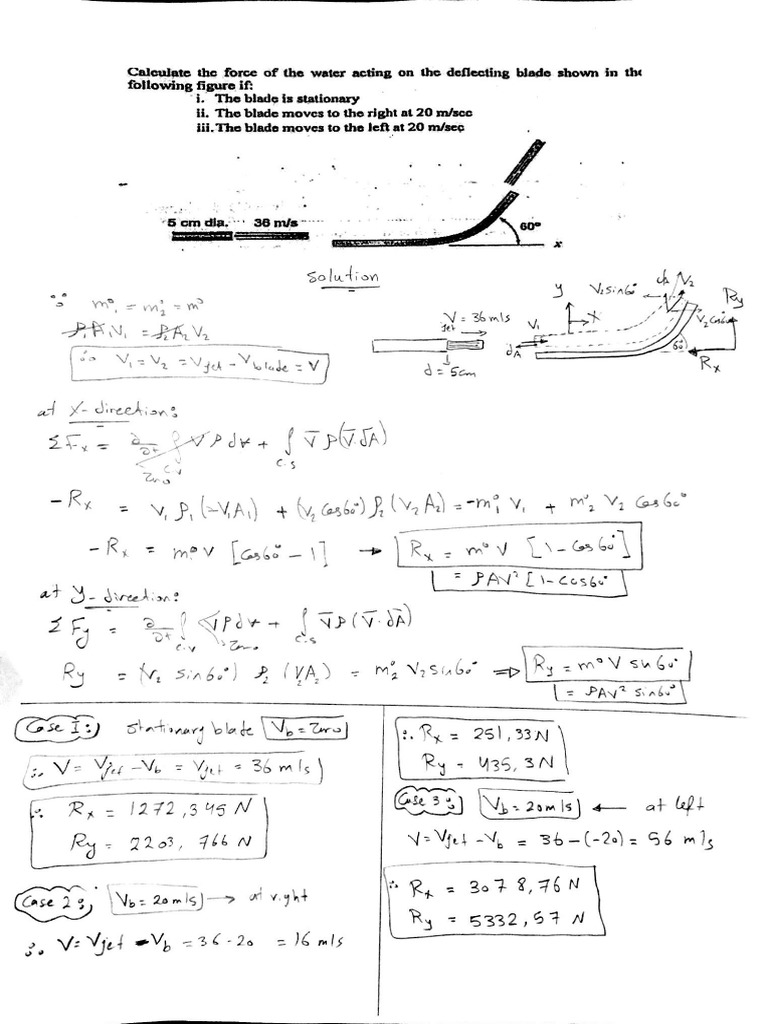 Calculate the force of the water acting on the deflecting blade shown in the
following figure if:
i. The blade is stationary
ii. The blade moves to the right at 20 m/sec
iii. The blade moves to the left at 20 m/sec
5 cm dia. 36 m/s 60° x
Solution
∵ m°₁ = m°₂ = m°
ρ₁A₁V₁ = ρ₂A₂V₂
∴ V₁ = V₂ = Vjet - Vblade = V
V = 36 m/s
jet
d = 5cm
y
x
V₁
dA
V₂ sin60°
dA V₂
Ry
V₂ Cos60°
60°
Rx
at X-direction:
ΣFx = ∂/∂t ∫ V ρ d∀ + ∫ V̄ ρ (V̄.dA̅)
C.V C.S
Zero
-Rx = V₁ ρ₁ (-V₁A₁) + (V₂ Cos60°) ρ₂ (V₂ A₂) = -m°₁ V₁ + m°₂ V₂ Cos60°
-Rx = m° V [Cos60° - 1] → Rx = m° V [1 - Cos60°]
= ρAV² [1 - Cos60°
at Y-direction:
Σ Fy = ∂/∂t ∫ V̄ ρ d∀ + ∫ V̄ ρ (V̄.dA̅)
C.V Zero C.S
Ry = (V₂ sin60°) ρ₂ (V₂A₂) = m°₂ V₂ sin60° ⇒ Ry = m° V sin60°
= ρAV² sin60°
Case I: Stationary blade Vb = Zero
∴ V = Vjet - Vb = Vjet = 36 m/s
∴ Rx = 1272,345 N
Ry = 2203,766 N
Case 2: Vb = 20 m/s → at right
∴ V = Vjet - Vb = 36 - 20 = 16 m/s
∴ Rx = 251,33 N
Ry = 435,3 N
Case 3: Vb = 20 m/s ← at left
V = Vjet - Vb = 36 - (-20) = 56 m/s
∴ Rx = 3078,76 N
Ry = 5332,57 N